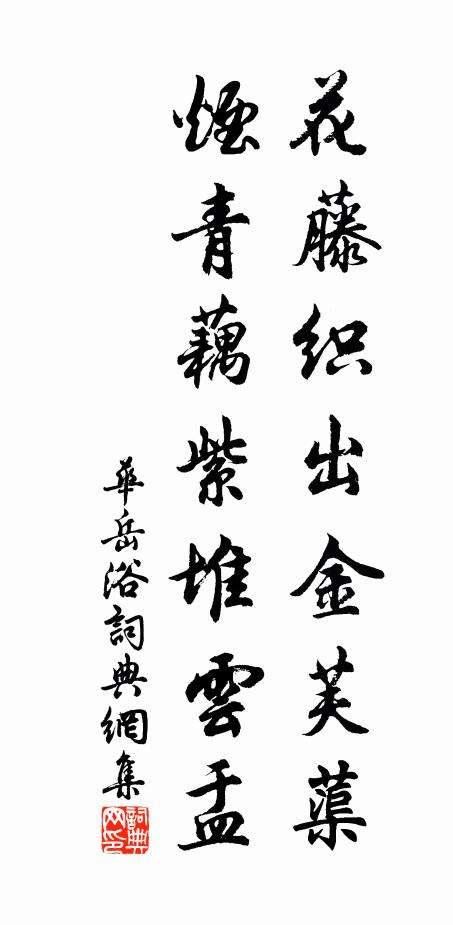 花藤织出金芙蕖
烟青藕紫堆雲盂
華岳浴詞典網集
詞典网印